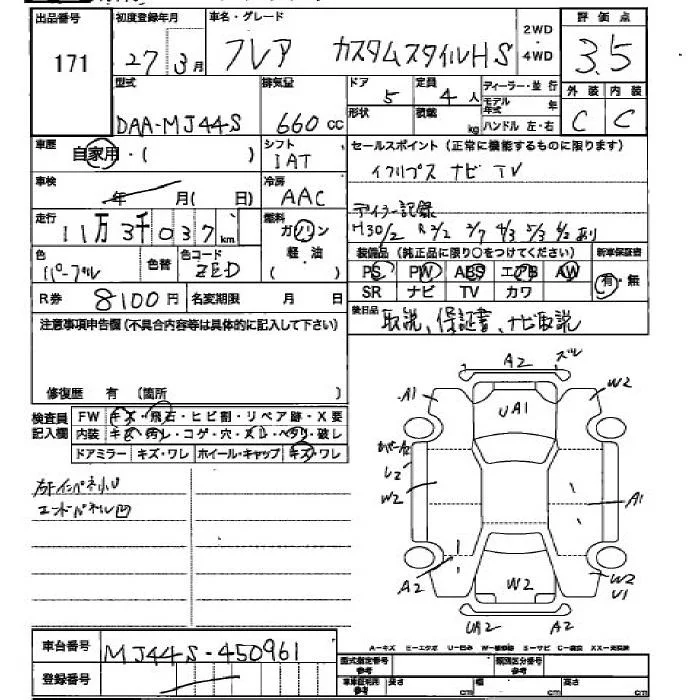 出品番号 初度登録年月 車名・グレード 2WD ・ 4WD 評価点
171 27 3月 フレア カスタムスタイルHS 3.5
型式 排気量 ドア 定員 ディーラー・並行 外装 内装
DAA-MJ44S 660cc 5 4人 モデル年式 年 C C
形状 積載 kg ハンドル 左・右
車歴 自家用・( ) シフト IAT セールスポイント(正常に機能するものに限ります)
車検 年 月( 日) 冷房 AAC ナビ TV
走行 11万3千037km 燃料 ガソリン・軽油 ディーラー記録
H30/2 R2/2 3/7 4/3 5/3 6/2 あり
色 パープル 色替 色コード ZED 装備品(純正品に限り○をつけてください) 新車保証書
PS PW ABS エアB AW 有・無
R券 8100円 名変期限 月 日 SR ナビ TV カワ
注意事項申告欄(不具合内容等は具体的に記入して下さい) 後日品 取説、保証書、ナビ取説
修復歴 有 (箇所 )
検査員記入欄 FW キズ・飛石・ヒビ割・リペア跡・X要
内装 キズ・汚れ・コゲ・穴・スレ・ヘタリ・破レ
ドアミラー キズ・ワレ ホイール・キャップ キズ・ワレ
エンドパネル凹
A2 ズレ
A1 UA1 W2
カバーA2
U2
W2 A1
A2 W2 W2
U1
UA2 A2
A-キズ E-エクボ U-凹み W-補修跡 S-サビ C-腐食 XX-交換済
車台番号 MJ44S-450961
登録番号
型式指定番号 参考 類別区分番号 参考
車車証明用 参考 長さ cm 幅 cm 高さ cm